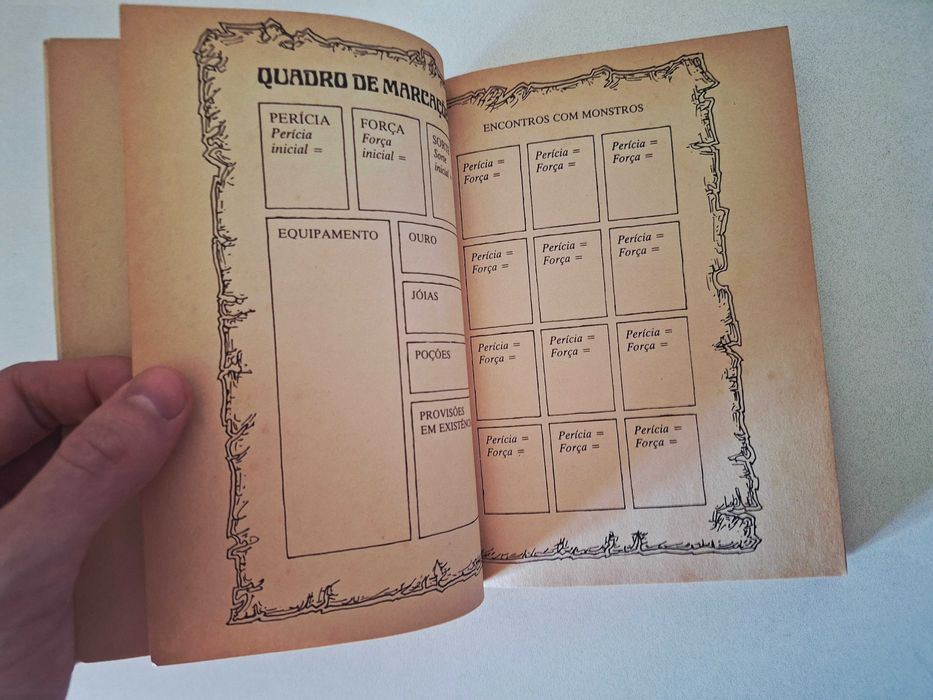 QUADRO DE
PERÍCIA
Perícia
inicial =
FORÇA
Força
inicial =
inicial
EQUIPAMENTO
OURO
JÓIAS
POÇÕES
PROVISÕES
EM
ENCONTROS COM MONSTROS
Perícia =
Força =
Perícia =
Força =
Perícia =
Força =
Perícia =
Força =
Perícia =
Força =
Perícia =
Força =
Perícia =
Força =
Perícia =
Força =
Perícia =
Força =
Perícia =
Força =
Perícia =
Força =
Perícia =
Força =